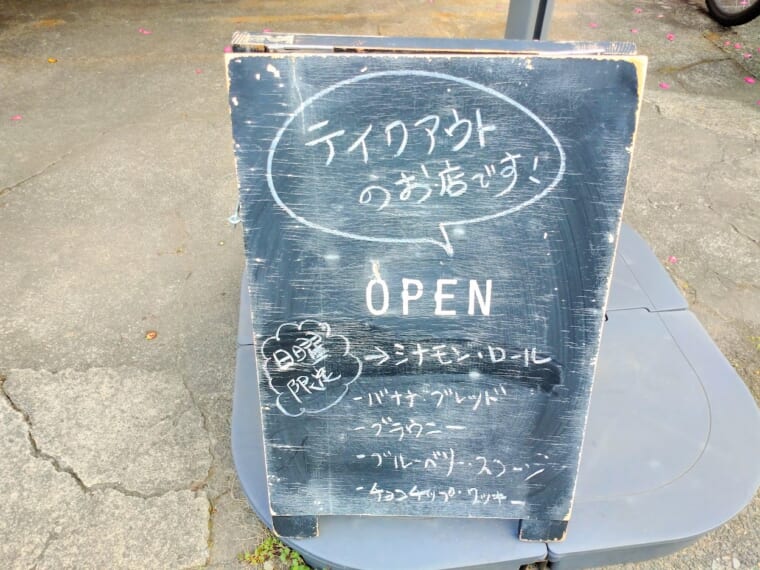 テイクアウト
のお店です!
OPEN
日曜
限定
→シナモン・ロール
-バナナ・ブレッド
-ブラウニー
-ブルーベリー・スコーン
-チョコチップ・クッキー